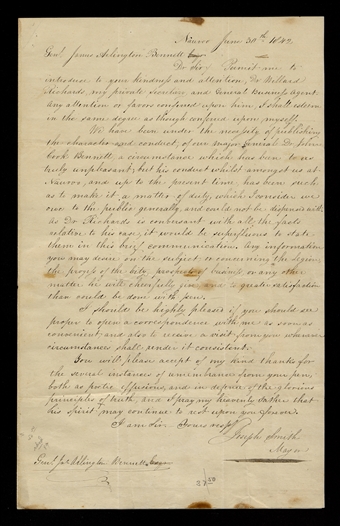 Nauvoo June 30th 1842.
Genl. James Arlington Bennett
Dr Sir, Permit me to
introduce to your kindness and attention, Dr Willard
Richards, my private Secretary, and General Business Agent.
Any attention or favors confered upon him, I shall esteem
in the same degree as though confered upon myself.
We have been under the necessity of publishing
the character and conduct, of our major General Dr John
Cook Bennett, a circumstance which has been to us
truly unpleasant; but his conduct whilst amongst us at
Nauvoo, and up to the present time has been such
as to make it a matter of duty, which I consider we
owe to the public generally and could not be dispensed with
as Dr Richards is conversant with all the facts
relative to his case, it would be superfluous to state
them in this brief communication. Any information
you may desire on the subject, or concerning the legion,
the progress of the city, prospects of business or any other
matter he will cheerfully give, and to greater satisfaction
than could be done with pen.
I should be highly pleased if you should see
proper to open a correspondence with me as soon as
convenient; and also to receive a visit from you whenever
circumstances shall render it consistent.
You will please accept of my kind thanks for
the several instances of remembrance from your pen,
both as poetic effusions, and in defence of the glorious
principles of truth, and I pray my heavenly Father that
his spirit may continue to rest upon you forever.
I am Sir Yours respy
Joseph Smith
Mayor
Genl. Jas Arlington Bennett